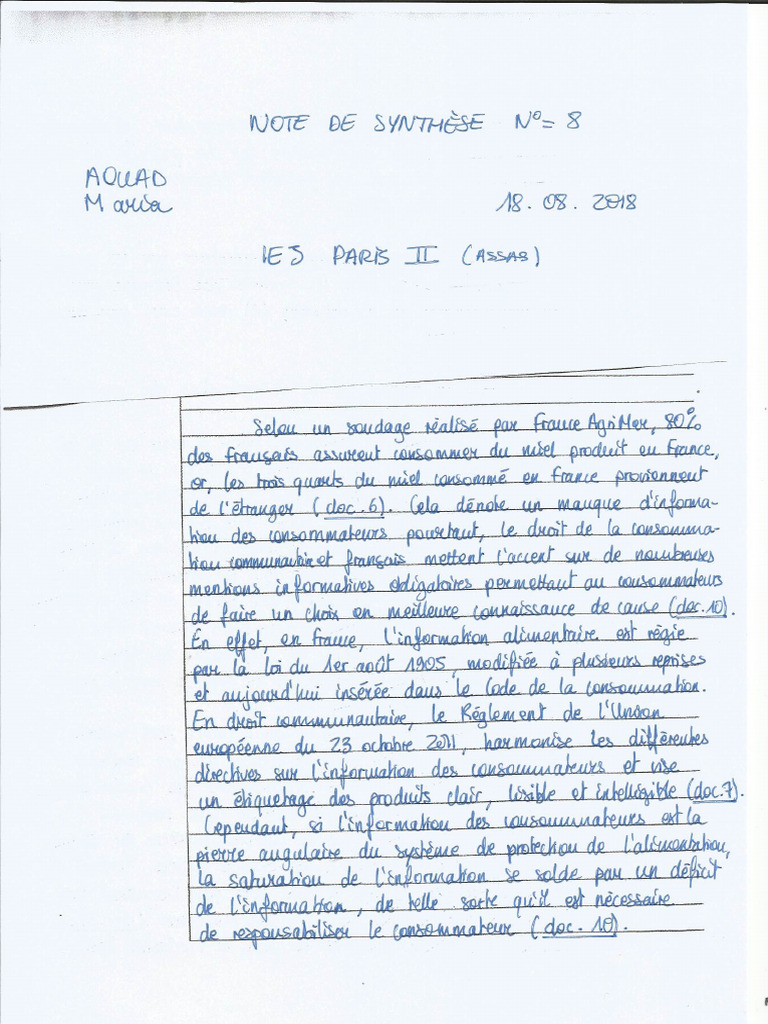 NOTE DE SYNTHÈSE N°= 8
AOUAD
Maria
18. 08. 2018
IEJ PARIS II (ASSAS)
Selon un sondage réalisé par France AgriMer, 80%
des français assurent consommer du miel produit en France,
or, les trois quarts du miel consommé en France proviennent
de l'étranger (doc. 6). Cela dénote un manque d'informa-
tion des consommateurs pourtant, le droit de la consomma-
tion communautaire et français mettent l'accent sur de nombreuses
mentions informatives obligatoires permettant au consommateurs
de faire un choix en meilleure connaissance de cause (doc. 10).
En effet, en France, l'information alimentaire est régie
par la loi du 1er août 1905, modifiée à plusieurs reprises
et aujourd'hui insérée dans le Code de la consommation.
En droit communautaire, le Règlement de l'Union
européenne du 23 octobre 2011, harmonise les différentes
directives sur l'information des consommateurs et vise
un étiquetage des produits clair, lisible et intelligible (doc.7).
Cependant, si l'information des consommateurs est la
pierre angulaire du système de protection de l'alimentation,
la saturation de l'information se solde par un déficit
de l'information, de telle sorte qu'il est nécessaire
de responsabiliser le consommateur (doc. 10).